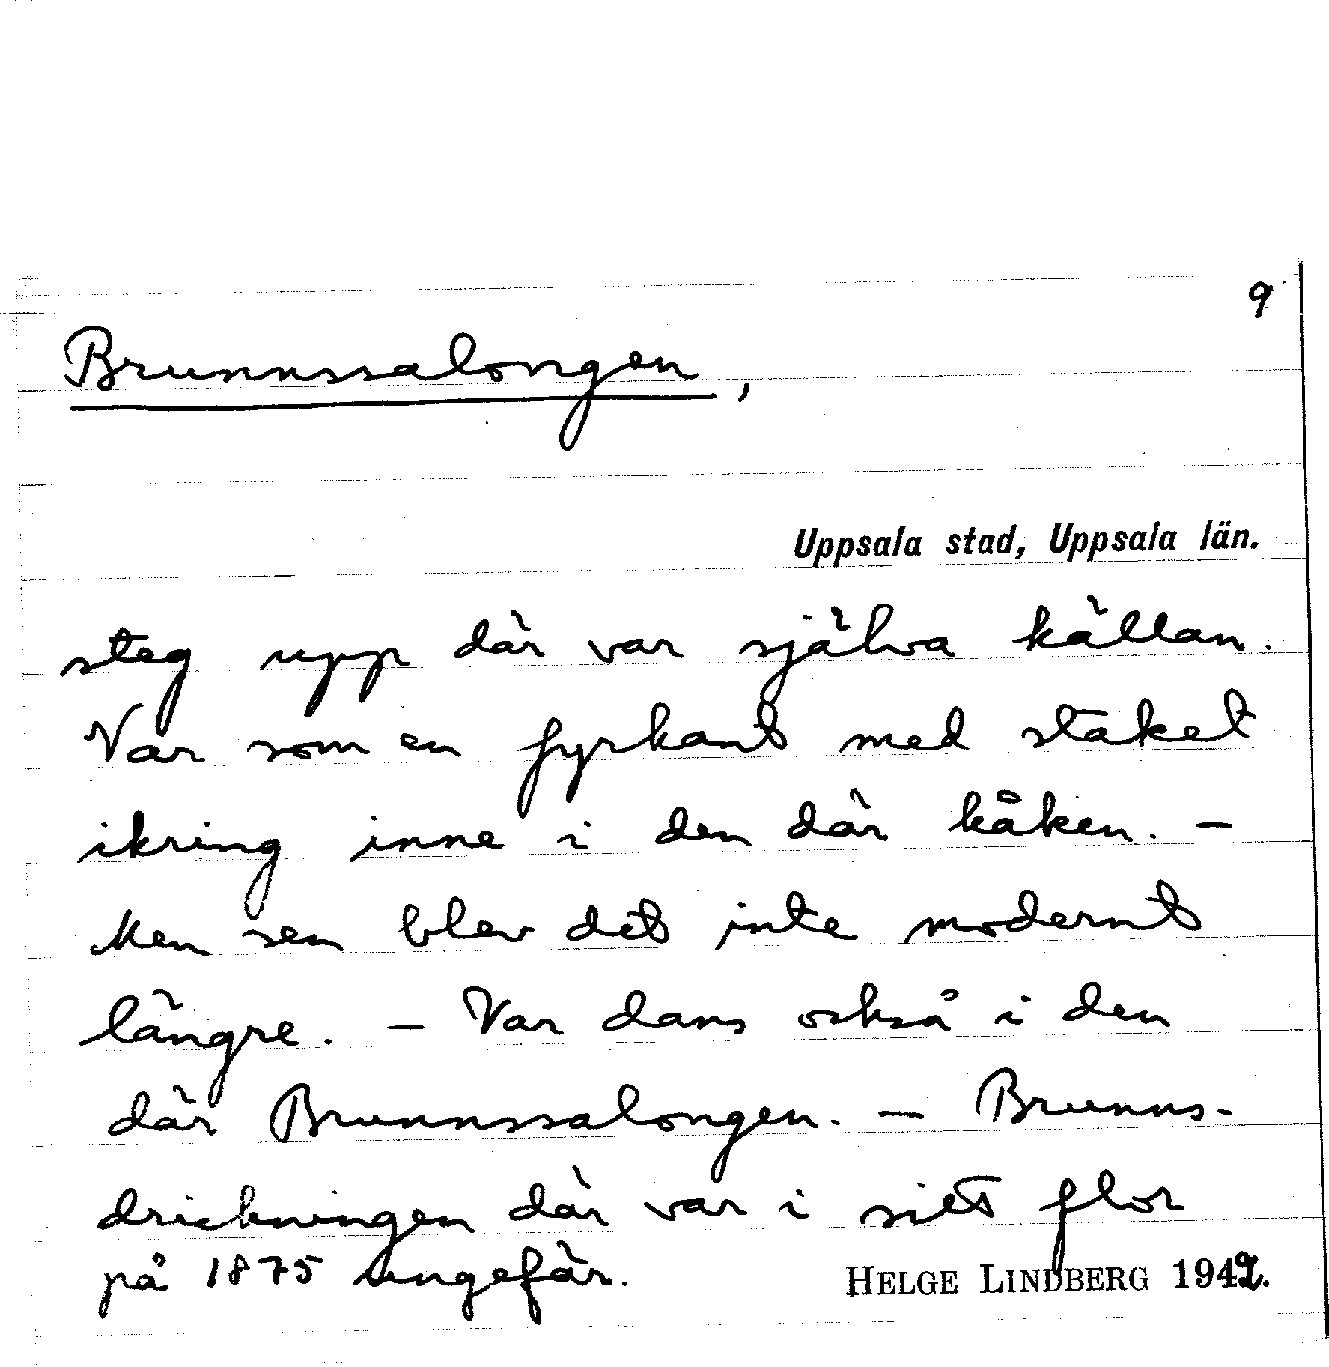 9
Brunnssalongen,
Uppsala stad, Uppsala län.
steg upp där var själva källan.
Var som en fyrkant med staket
ikring inne i den där kåken. –
Men sen blev det inte modernt
längre. – Var dans också i den
där Brunnssalongen. – Brunns-
drickningen där var i sitt flor
på 1875 ungefär.
HELGE LINDBERG 1942.